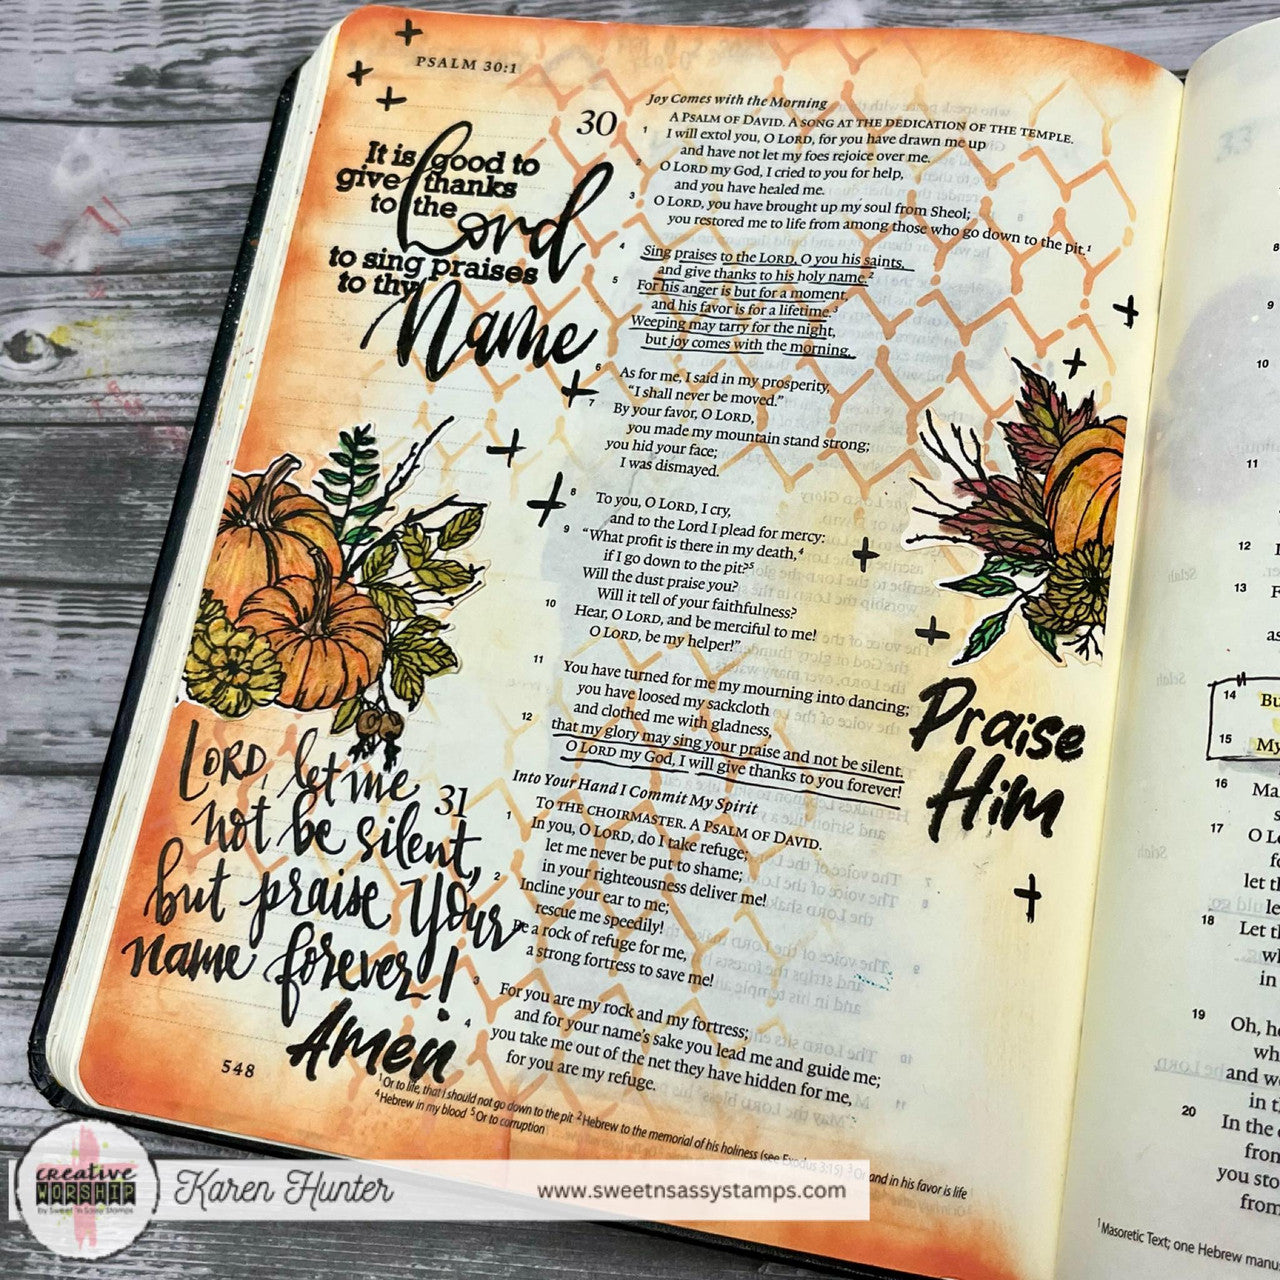 PSALM 30:1
It is good to
give thanks
to the Lord
to sing praises
to thy
Name
Joy Comes with the Morning
30 A PSALM OF DAVID. A SONG AT THE DEDICATION OF THE TEMPLE.
1 I will extol you, O LORD, for you have drawn me up
and have not let my foes rejoice over me.
2 O LORD my God, I cried to you for help,
and you have healed me.
3 O LORD, you have brought up my soul from Sheol;
you restored me to life from among those who go down to the pit.1
4 Sing praises to the LORD, O you his saints,
and give thanks to his holy name.2
5 For his anger is but for a moment,
and his favor is for a lifetime.3
Weeping may tarry for the night,
but joy comes with the morning.
6 As for me, I said in my prosperity,
"I shall never be moved."
7 By your favor, O LORD,
you made my mountain stand strong;
you hid your face;
I was dismayed.
8 To you, O LORD, I cry,
and to the Lord I plead for mercy:
9 "What profit is there in my death,4
if I go down to the pit?5
Will the dust praise you?
Will it tell of your faithfulness?
10 Hear, O LORD, and be merciful to me!
O LORD, be my helper!"
11 You have turned for me my mourning into dancing;
you have loosed my sackcloth
and clothed me with gladness,
12 that my glory may sing your praise and not be silent.
O LORD my God, I will give thanks to you forever!
Into Your Hand I Commit My Spirit
31 TO THE CHOIRMASTER. A PSALM OF DAVID.
1 In you, O LORD, do I take refuge;
let me never be put to shame;
in your righteousness deliver me!
2 Incline your ear to me;
rescue me speedily!
Be a rock of refuge for me,
a strong fortress to save me!
3 For you are my rock and my fortress;
and for your name's sake you lead me and guide me;
4 you take me out of the net they have hidden for me,
for you are my refuge.
Praise
Him
LORD, let me
not be silent,
but praise Your
name forever!
Amen
548
1 Or to life, that I should not go down to the pit 2 Hebrew to the memorial of his holiness (see Exodus 3:15) 3 Or and in his favor is life
4 Hebrew in my blood 5 Or to corruption
8
9
10
11
12
13
14 Bu
15 My
16 Ma
17 O L
let th
le
18 Let th
wh
in
19 Oh, ho
wh
and wo
in th
20 In the
from
you sto
from
1 Masoretic Text; one Hebrew manu
creative
WORSHIP
by Sweet 'n Sassy Stamps
Karen Hunter
www.sweetnsassystamps.com